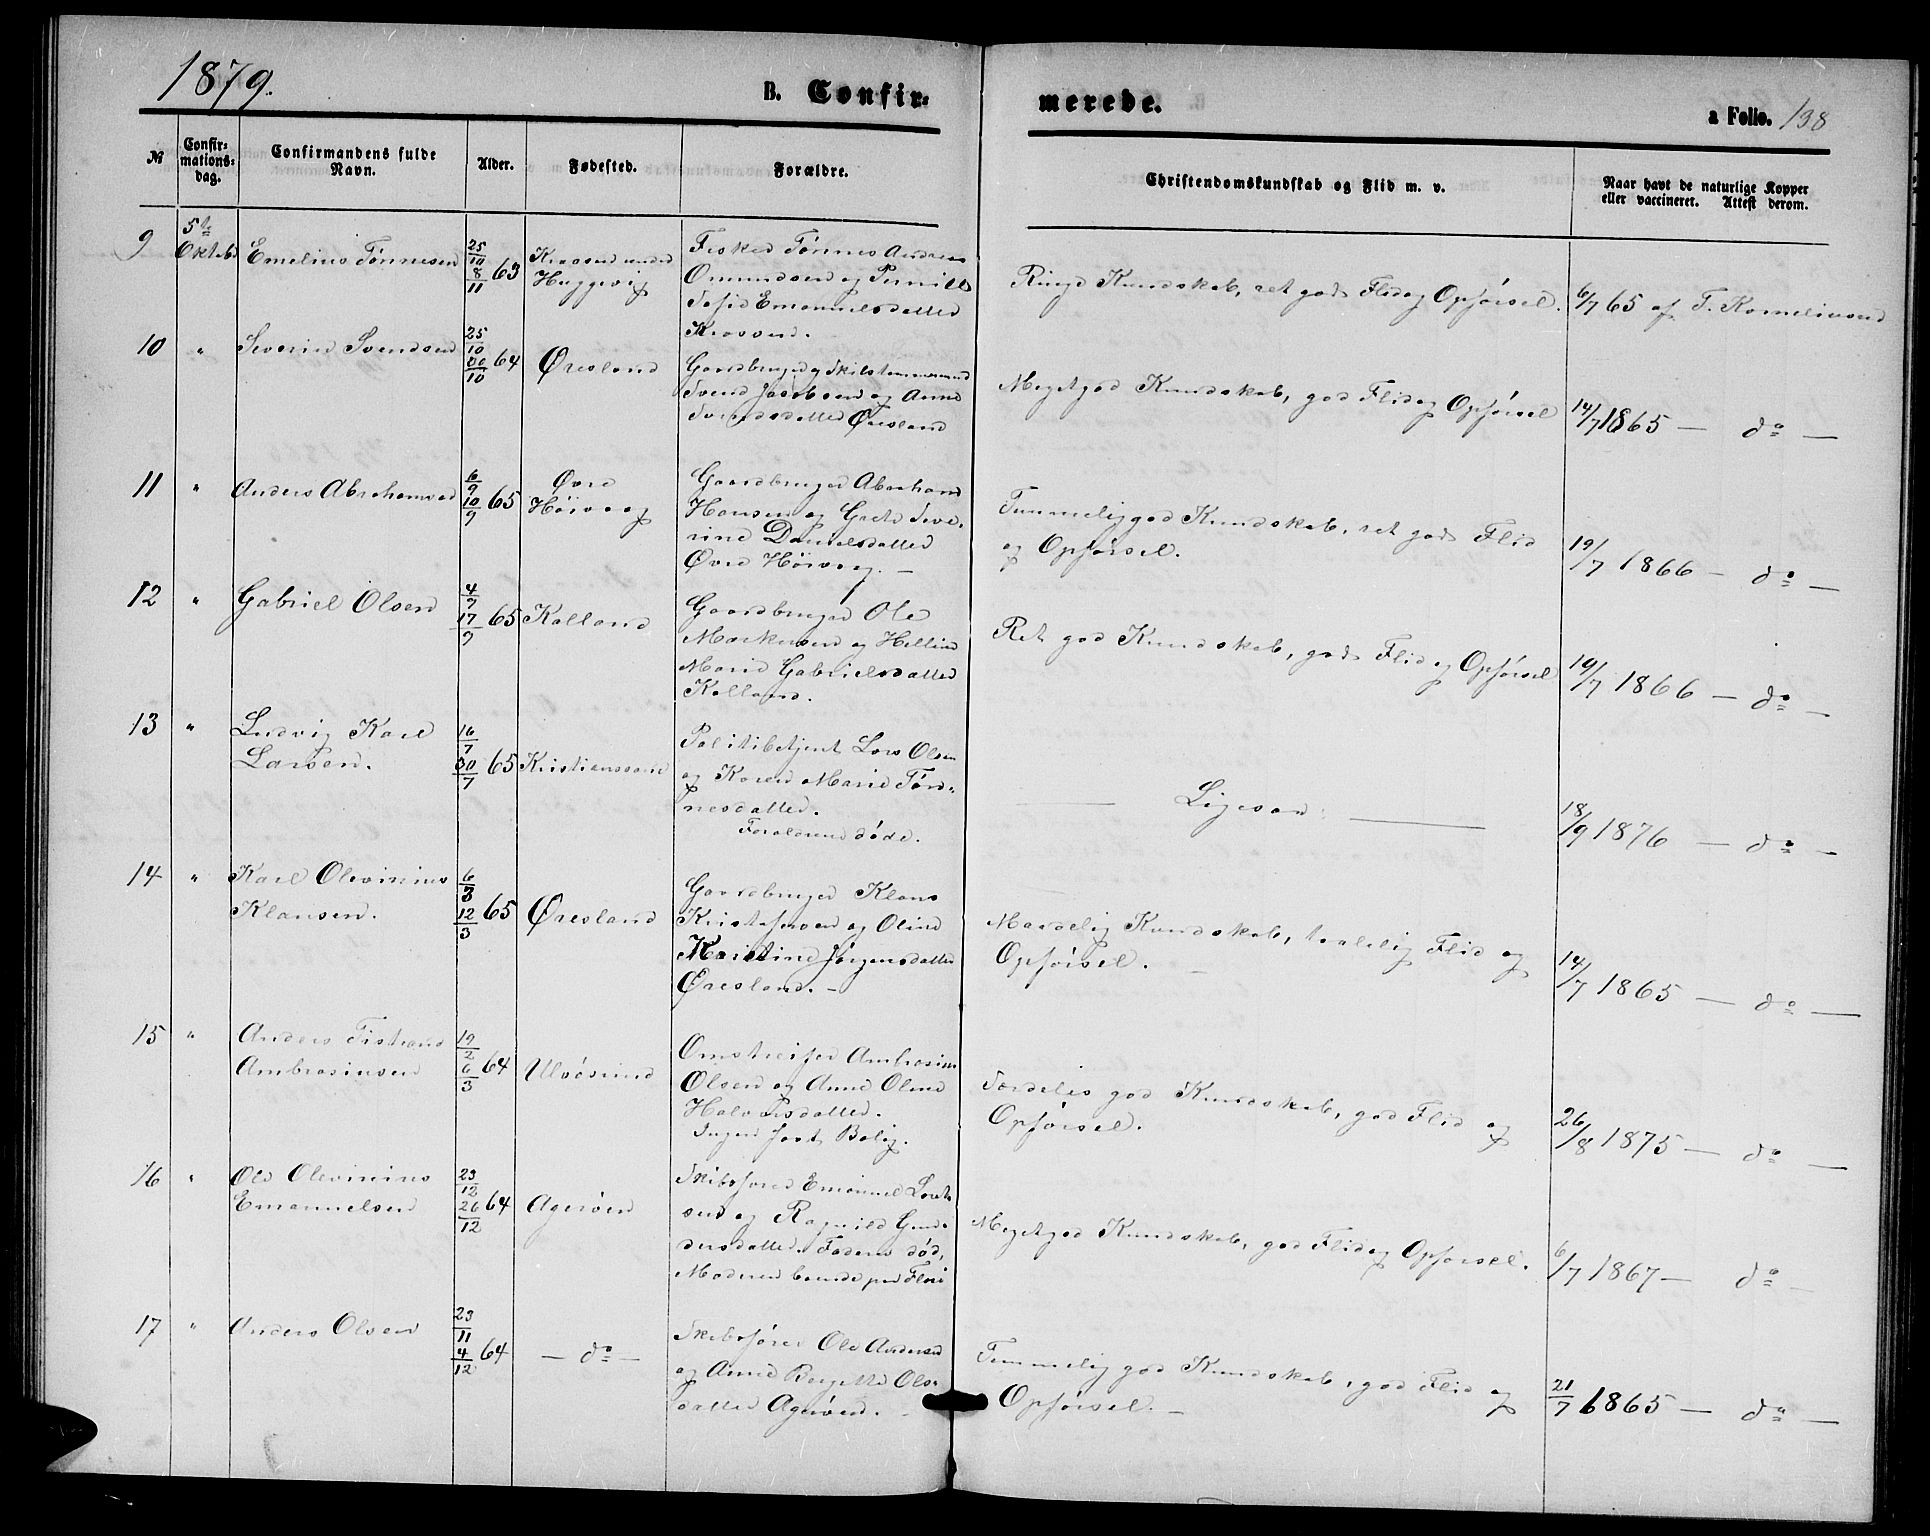 1879.
B. Confir-
merede.
a Folio. 138
№
Confir-
mations-
dag.
Confirmandens fulde
Navn.
Alder.
Fødested.
Forældre.
Christendomskundskab og Flid m. v.
Naar havt de naturlige Kopper
eller vaccineret. Attest derom.
9 5te Oktob Emelius Tønnesen 25/10 8/11 63
Huggevig
Fisker Tønnes Andreas
Omundsen og Pernille
Sofie Emanuelsdatter
Krossen.
Ringe Kundskab, ret gods Flid og Opførsel.
6/7 65 af T. Kornelius​en
10 " Severin Svendsen 25/10 30/10 64 Øresland
Gaardbruger og Skilstømmermand
Svend Jacobsen og Anne
Svendsdatter Øresland
Meget god Kundskab, god Flid og Opførsel
14/7 1865 — do —
11 " Anders Abrahamsen 6/9 10/9 65 Øvre
Høivaag
Gaardbruger Abraham
Hansen og Grete Seve-
rine Danielsdatter
Øvre Høivaag. —
Temmelig god Kundskab, ret gods Flid
og Opførsel.
19/7 1866 — do —
12 " Gabriel Olsen 4/9 17/9 65 Kalland
Gaardbruger Ole
Markusen og Helline
Marie Gabrielsdatter
Kalland.
Ret god Kundskab, gods Flid og Opførsel
19/7 1866 — do —
13 " Ludvig Karl
Larsen. 16/7 30/7 65 Kristianssand
Politibetjent Lars Olsen
og Karen Marie Tøn-
nesdatter.
Forældrene døde.
— Ligesaa: —
18/9 1876 — do —
14 " Karl Olevinius
Klausen. 6/3 12/3 65 Øresland
Gaardbruger Klaus
Kristofersen og Oline
Maristine Jørgensdatter
Øresland. —
Maadelig Kundskab, taalelig Flid og
Opførsel. —
14/7 1865 — do —
15 " Anders Tistrand
Ambrosiusen 19/2 6/3 64 Ulvøsund
Omstreifer Ambrosius
Olsen og Anne Oline
Halvorsdatter.
Ingen fast Bolig.
Særdeles god Kundskab, god Flid og
Opførsel.
26/8 1875 — do —
16 " Ole Olevinius
Emanuelsen 23/12 26/12 64 Agerøen
Skibsfører Emanuel Lor​ent-
sen og Ragnild Gun-
dersdatter. Faderen død,
Moderen boende paa
Meget god Kundskab, god Flid og Opførsel.
6/7 1867 — do —
17 " Anders Olsen 23/11 4/12 64 — do —
Skibsfører Ole Andersen
og Anne Bergette Ols-
datter Agerøen. —
Temmelig god Kundskab, god Flid og
Opførsel. —
21/7 1865 — do —